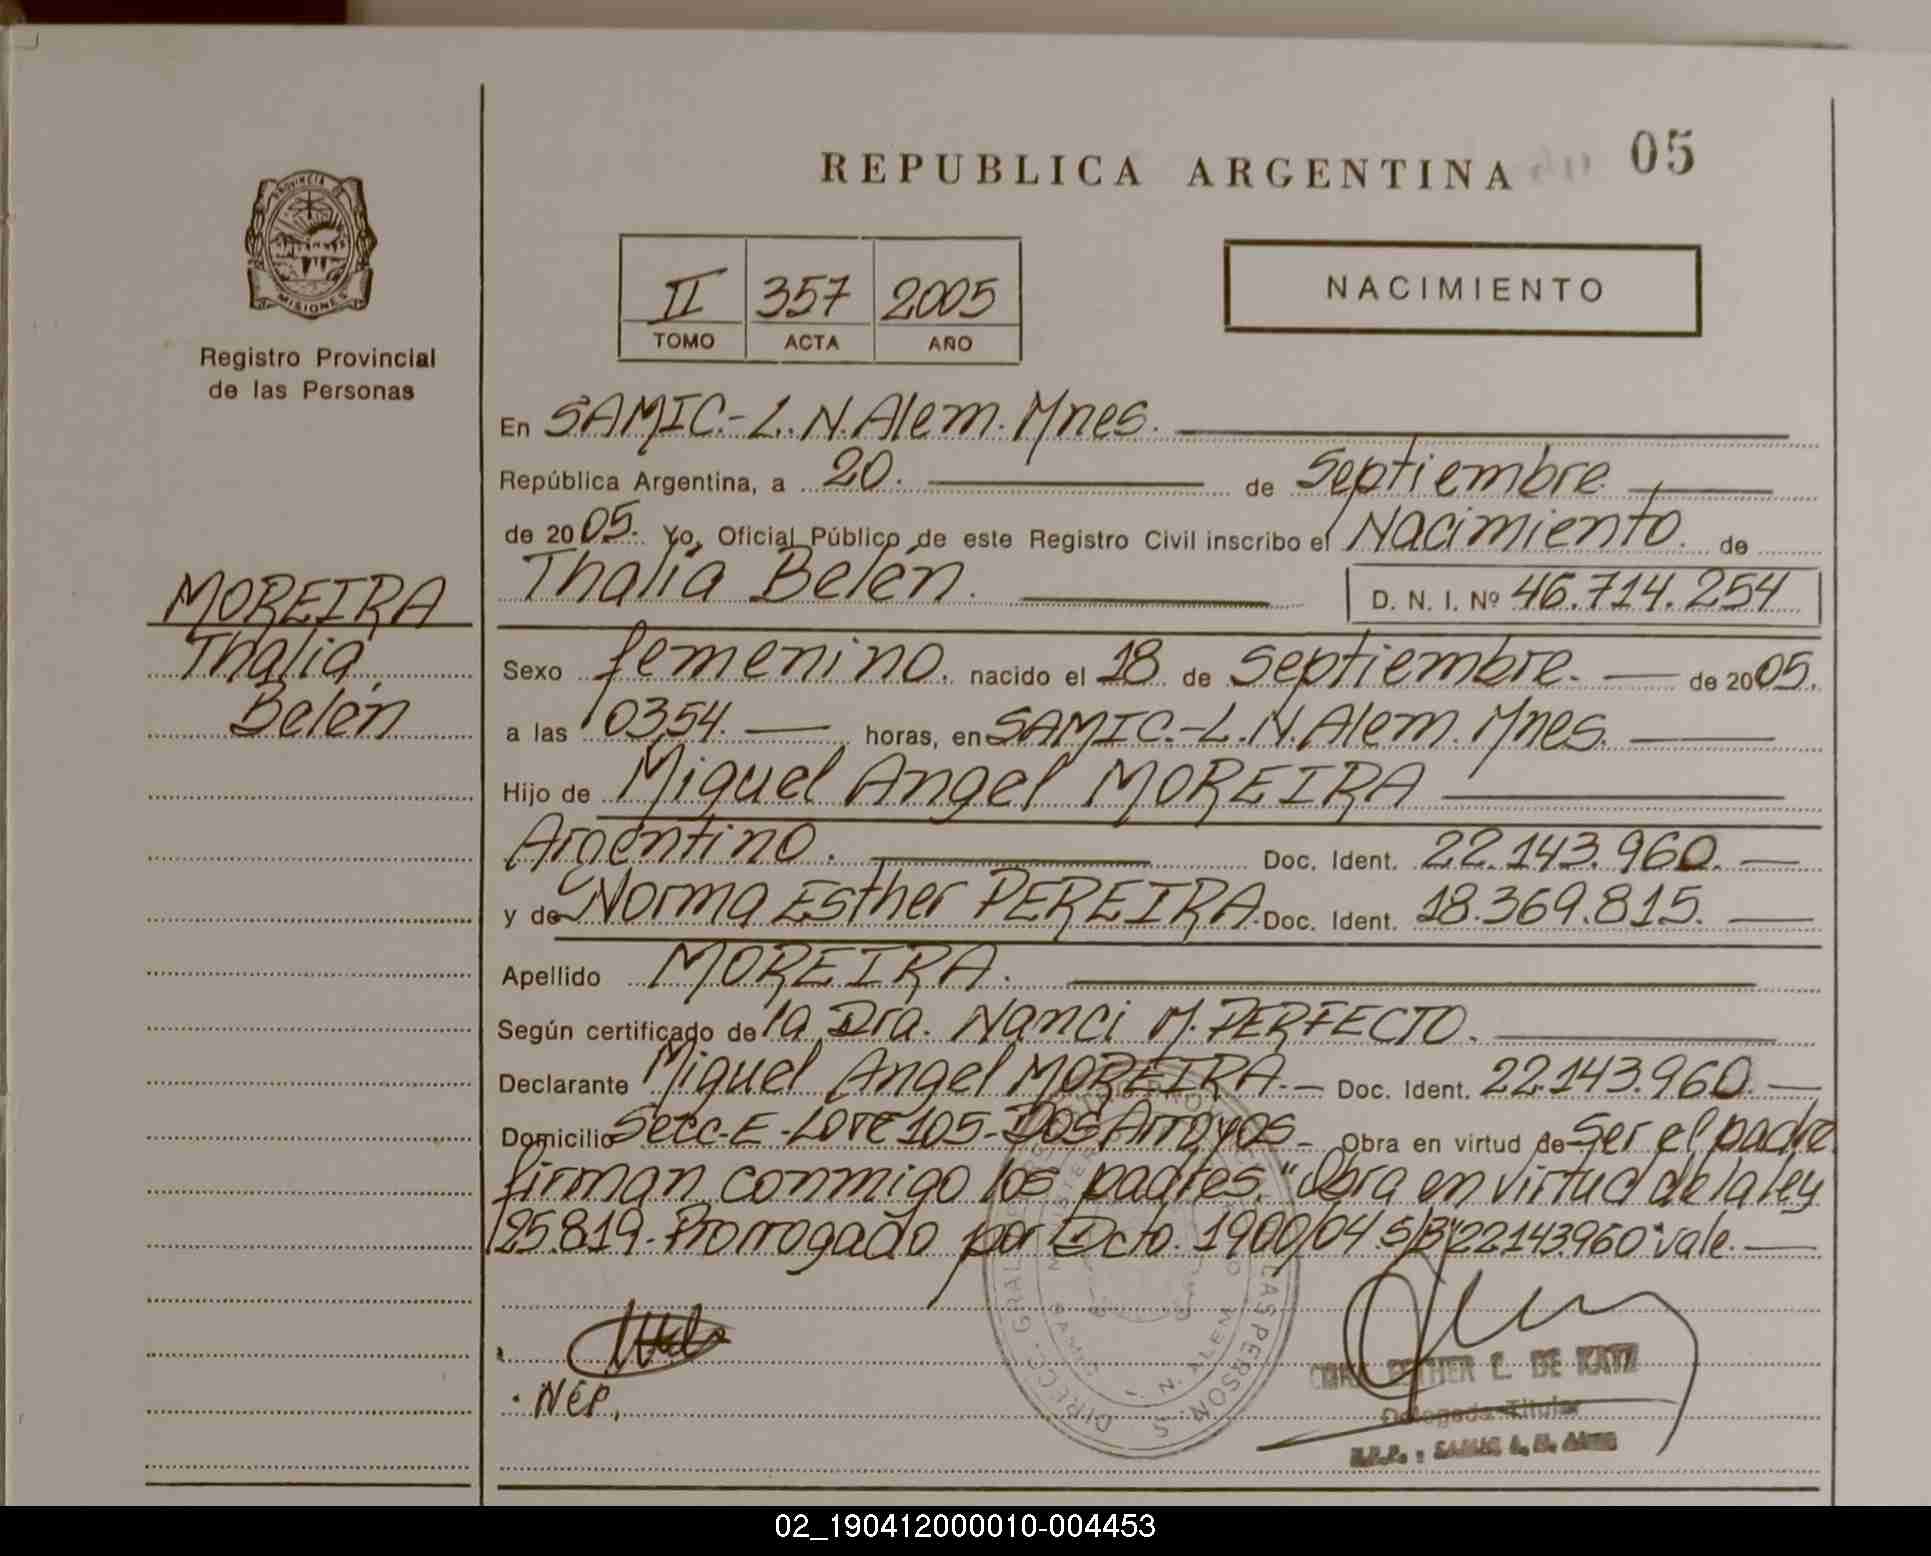 REPUBLICA ARGENTINA
05
PROVINCIA DE
MISIONES
Registro Provincial
de las Personas
II 357 2005
TOMO ACTA AÑO
NACIMIENTO
En SAMIC.-L.N.Alem.Mnes.
República Argentina, a 20. de Septiembre
de 2005. Yo, Oficial Público de este Registro Civil inscribo el Nacimiento. de
Thalia Belén. D. N. I. Nº 46.714.254
MOREIRA
Thalia
Belén
Sexo femenino. nacido el 18 de Septiembre. de 2005.
a las 0354. horas, en SAMIC.-L.N.Alem.Mnes.
Hijo de Miguel Angel MOREIRA
Argentino. Doc. Ident. 22.143.960.
y de Norma Esther PEREIRA. Doc. Ident. 18.369.815.
Apellido MOREIRA.
Según certificado de la Dra. Nanci M. PERFECTO.
Declarante Miguel Angel MOREIRA.- Doc. Ident. 22.143.960.
Domicilio Secc-E-Lote 105-Dos Arroyos- Obra en virtud de Ser el padre
firman conmigo los padres. "Obra en virtud de la ley
25.819-Prorrogado por Dcto. 1900/04 S/B"22143960"vale.
NEP.
ESTHER L. DE KATZ
Delegada Titular
DIRECC. GRAL. LAS PERSONAS
N. ALEM
02_190412000010-004453